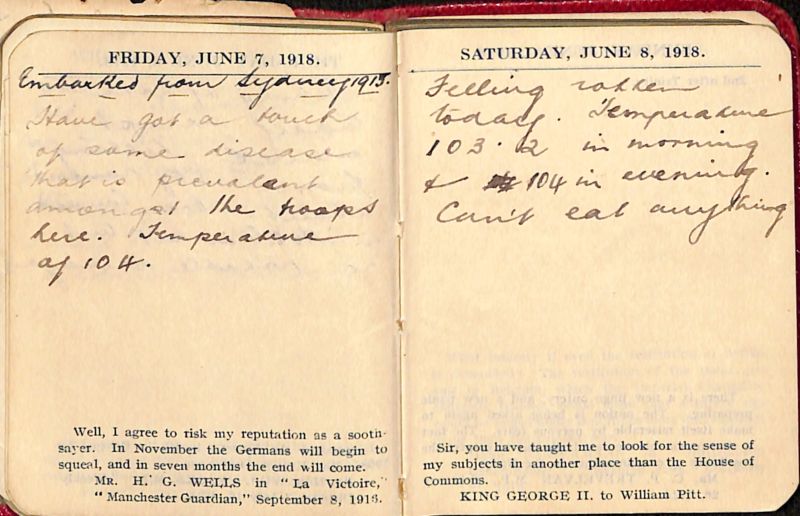 FRIDAY, JUNE 7, 1918.
Embarked from Sydney 1915.
Have got a touch
of some disease
that is prevalent
amongst the troops
here. Temperature
of 104.
Well, I agree to risk my reputation as a sooth-
sayer. In November the Germans will begin to
squeal, and in seven months the end will come.
MR. H. G. WELLS in "La Victoire,"
"Manchester Guardian," September 8, 1916.
SATURDAY, JUNE 8, 1918.
Feeling rotten
today. Temperature
103.2 in morning
& 104 in evening.
Can't eat anything
Sir, you have taught me to look for the sense of
my subjects in another place than the House of
Commons.
KING GEORGE II. to William Pitt.